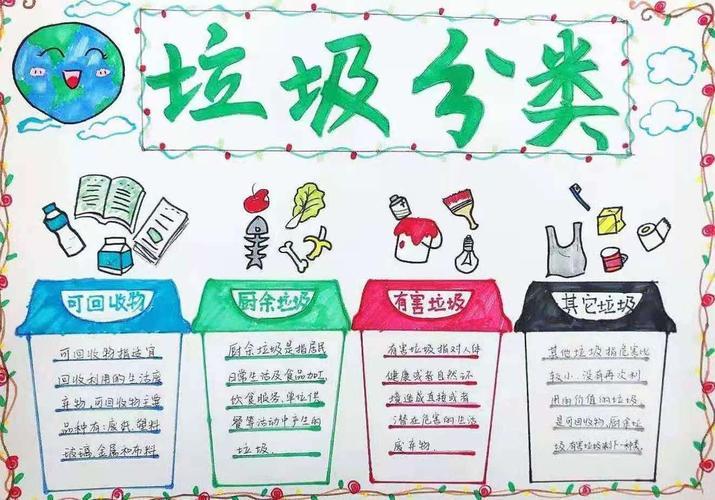 垃圾分类
可回收物
可回收物指适宜
回收利用的生活废
弃物，可回收物主要
品种有：废纸、塑料
玻璃、金属和布料
厨余垃圾
厨余垃圾是指居民
日常生活及食品加工、
饮食服务、单位供
餐等活动中产生的
垃圾.
有害垃圾
有害垃圾指对人体
健康或者自然环
境造成直接或者
潜在危害的生活
废弃物.
其它垃圾
其他垃圾指危害比
较小.没有再次利
用的价值的垃圾
是可回收物,厨余垃
圾,有害垃圾剩下一种类